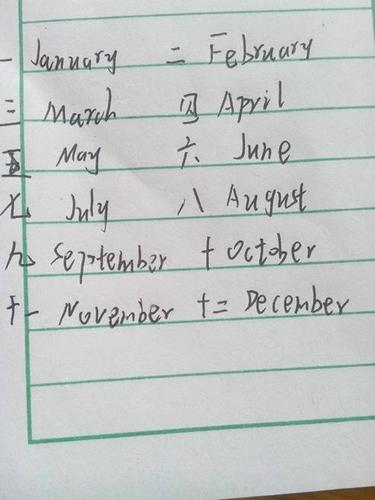 一 January 二 February
三 March 四 April
五 May 六 June
七 July 八 August
九 September 十 October
十一 November 十二 December